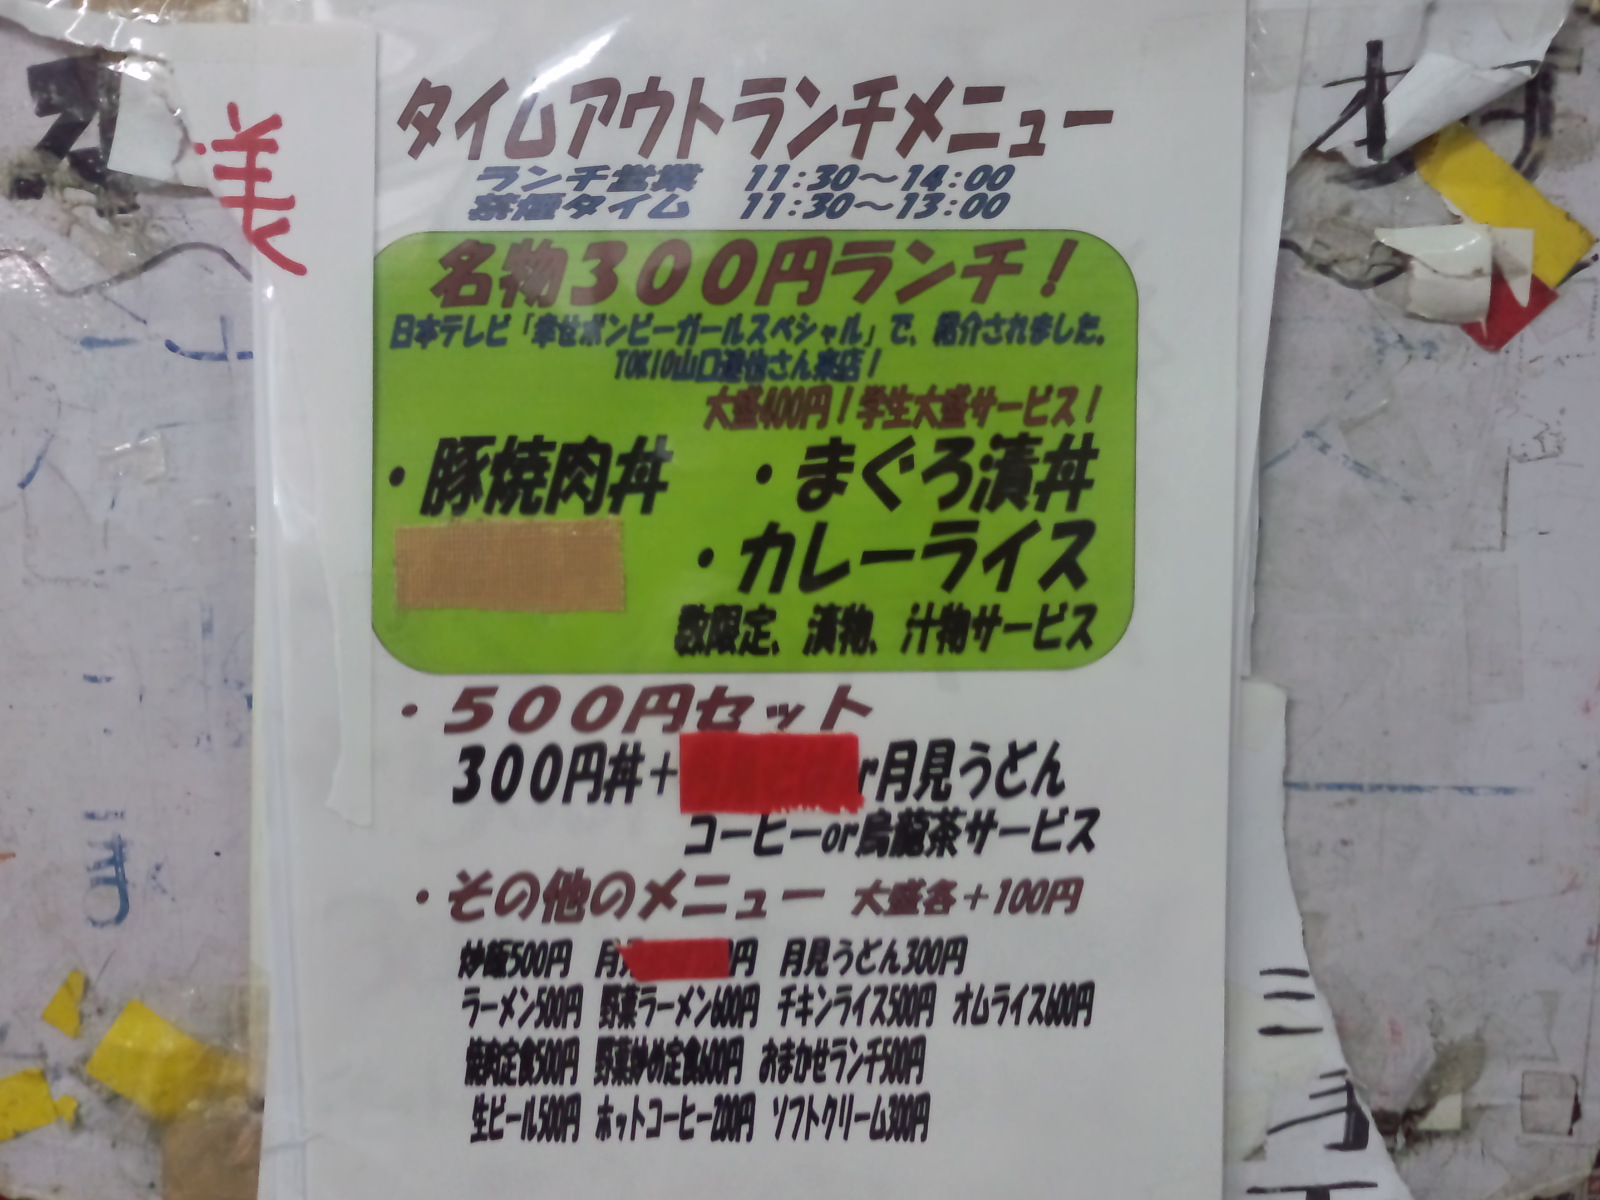 タイムアウトランチメニュー
ランチ営業 11:30～14:00
禁煙タイム 11:30～13:00
名物300円ランチ！
日本テレビ「幸せボンビーガールスペシャル」で、紹介されました。
TOKIO山口達也さん来店！
大盛400円！学生大盛サービス！
・豚焼肉丼 ・まぐろ漬丼
・カレーライス
数限定、漬物、汁物サービス
・500円セット
300円丼＋ r月見うどん
コーヒーor烏龍茶サービス
・その他のメニュー 大盛各＋100円
炒飯500円 月 円 月見うどん300円
ラーメン500円 野菜ラーメン600円 チキンライス500円 オムライス600円
焼肉定食500円 野菜炒め定食600円 おまかせランチ500円
生ビール500円 ホットコーヒー200円 ソフトクリーム300円